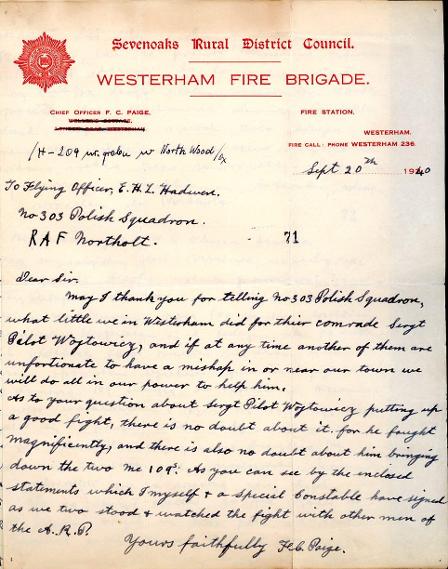 Sevenoaks Rural District Council.
WESTERHAM FIRE BRIGADE.
CHIEF OFFICER F. C. PAIGE.
FIRE STATION,
WESTERHAM.
FIRE CALL: PHONE WESTERHAM 236.
/H-209 w North Wood/
Sept 20th 1940
To Flying Officer, E. H. L. Hadwen.
No 303 Polish Squadron.
RAF Northolt.
71
Dear Sir.
may I thank you for telling No 303 Polish Squadron,
what little we in Westerham did for thier comrade Sergt
Pilot Wojtowicz, and if at any time another of them are
unfortonate to have a mishap in or near our town we
will do all in our power to help him.
As to your question about Sergt Pilot Wojtowicz putting up
a good fight, there is no doubt about it. for he fought
magnificently, and there is also no doubt about him bringing
down the two Me 109s. As you can see by the enclosed
statements which I myself & a Special Constable have signed
as we two stood & watched the fight with other men of
the A.R.P.
Yours faithfully F.C. Paige.